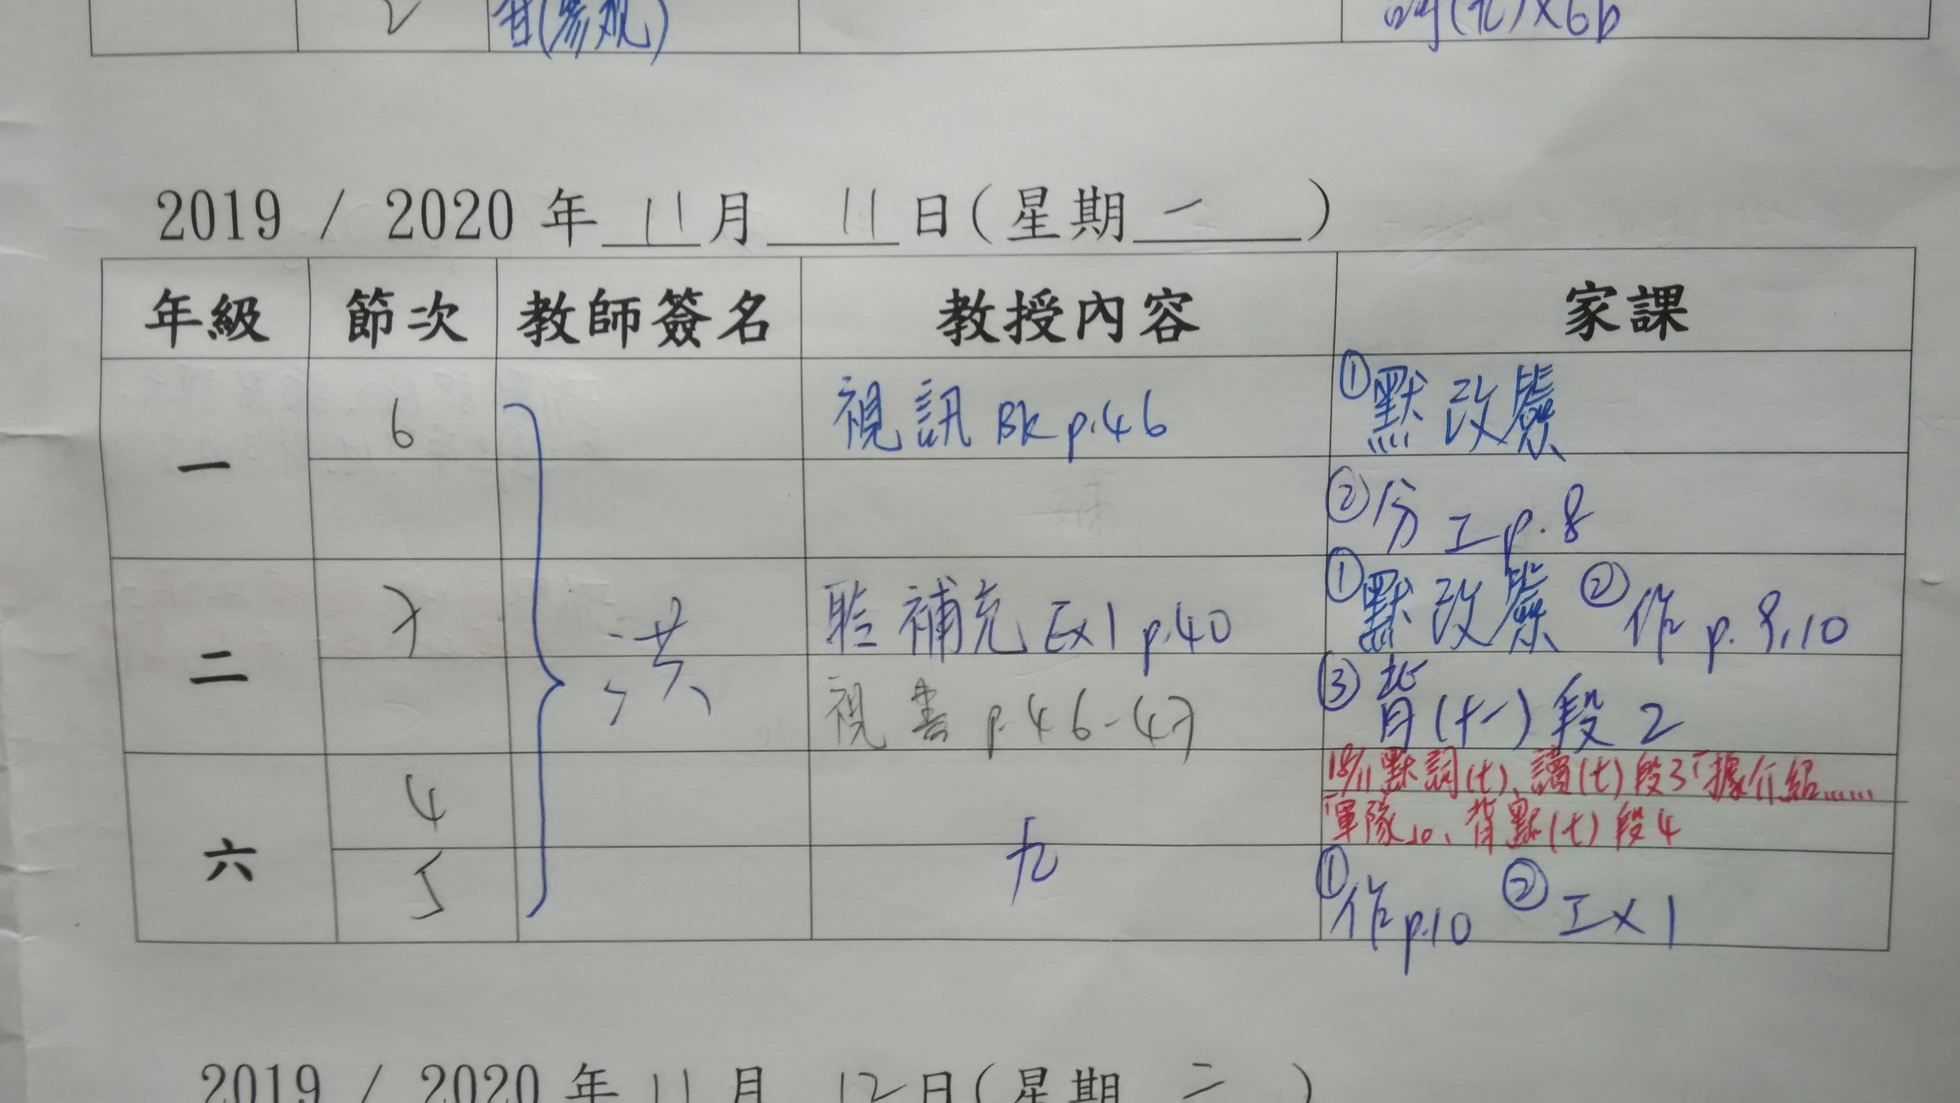 2 甘(參观)
2019 / 2020 年 11 月 11 日(星期 一 )
年級 節次 教師簽名 教授內容 家課
一 6 視訊 BK p.46 ①默改
②分工 p.8
二 7 洪 聆 補充 Ex1 p.40 ①默改 ②作 p.9,10
視書 p.46-47 ③背(十一)段2
六 4 18/11默詞(七)、讀(七)段3「據介紹......
軍隊」。、背默(七)段4
5 九 ①作 p.10 ②工x1
2019 / 2020 年 11 月 12 日(星期 二 )